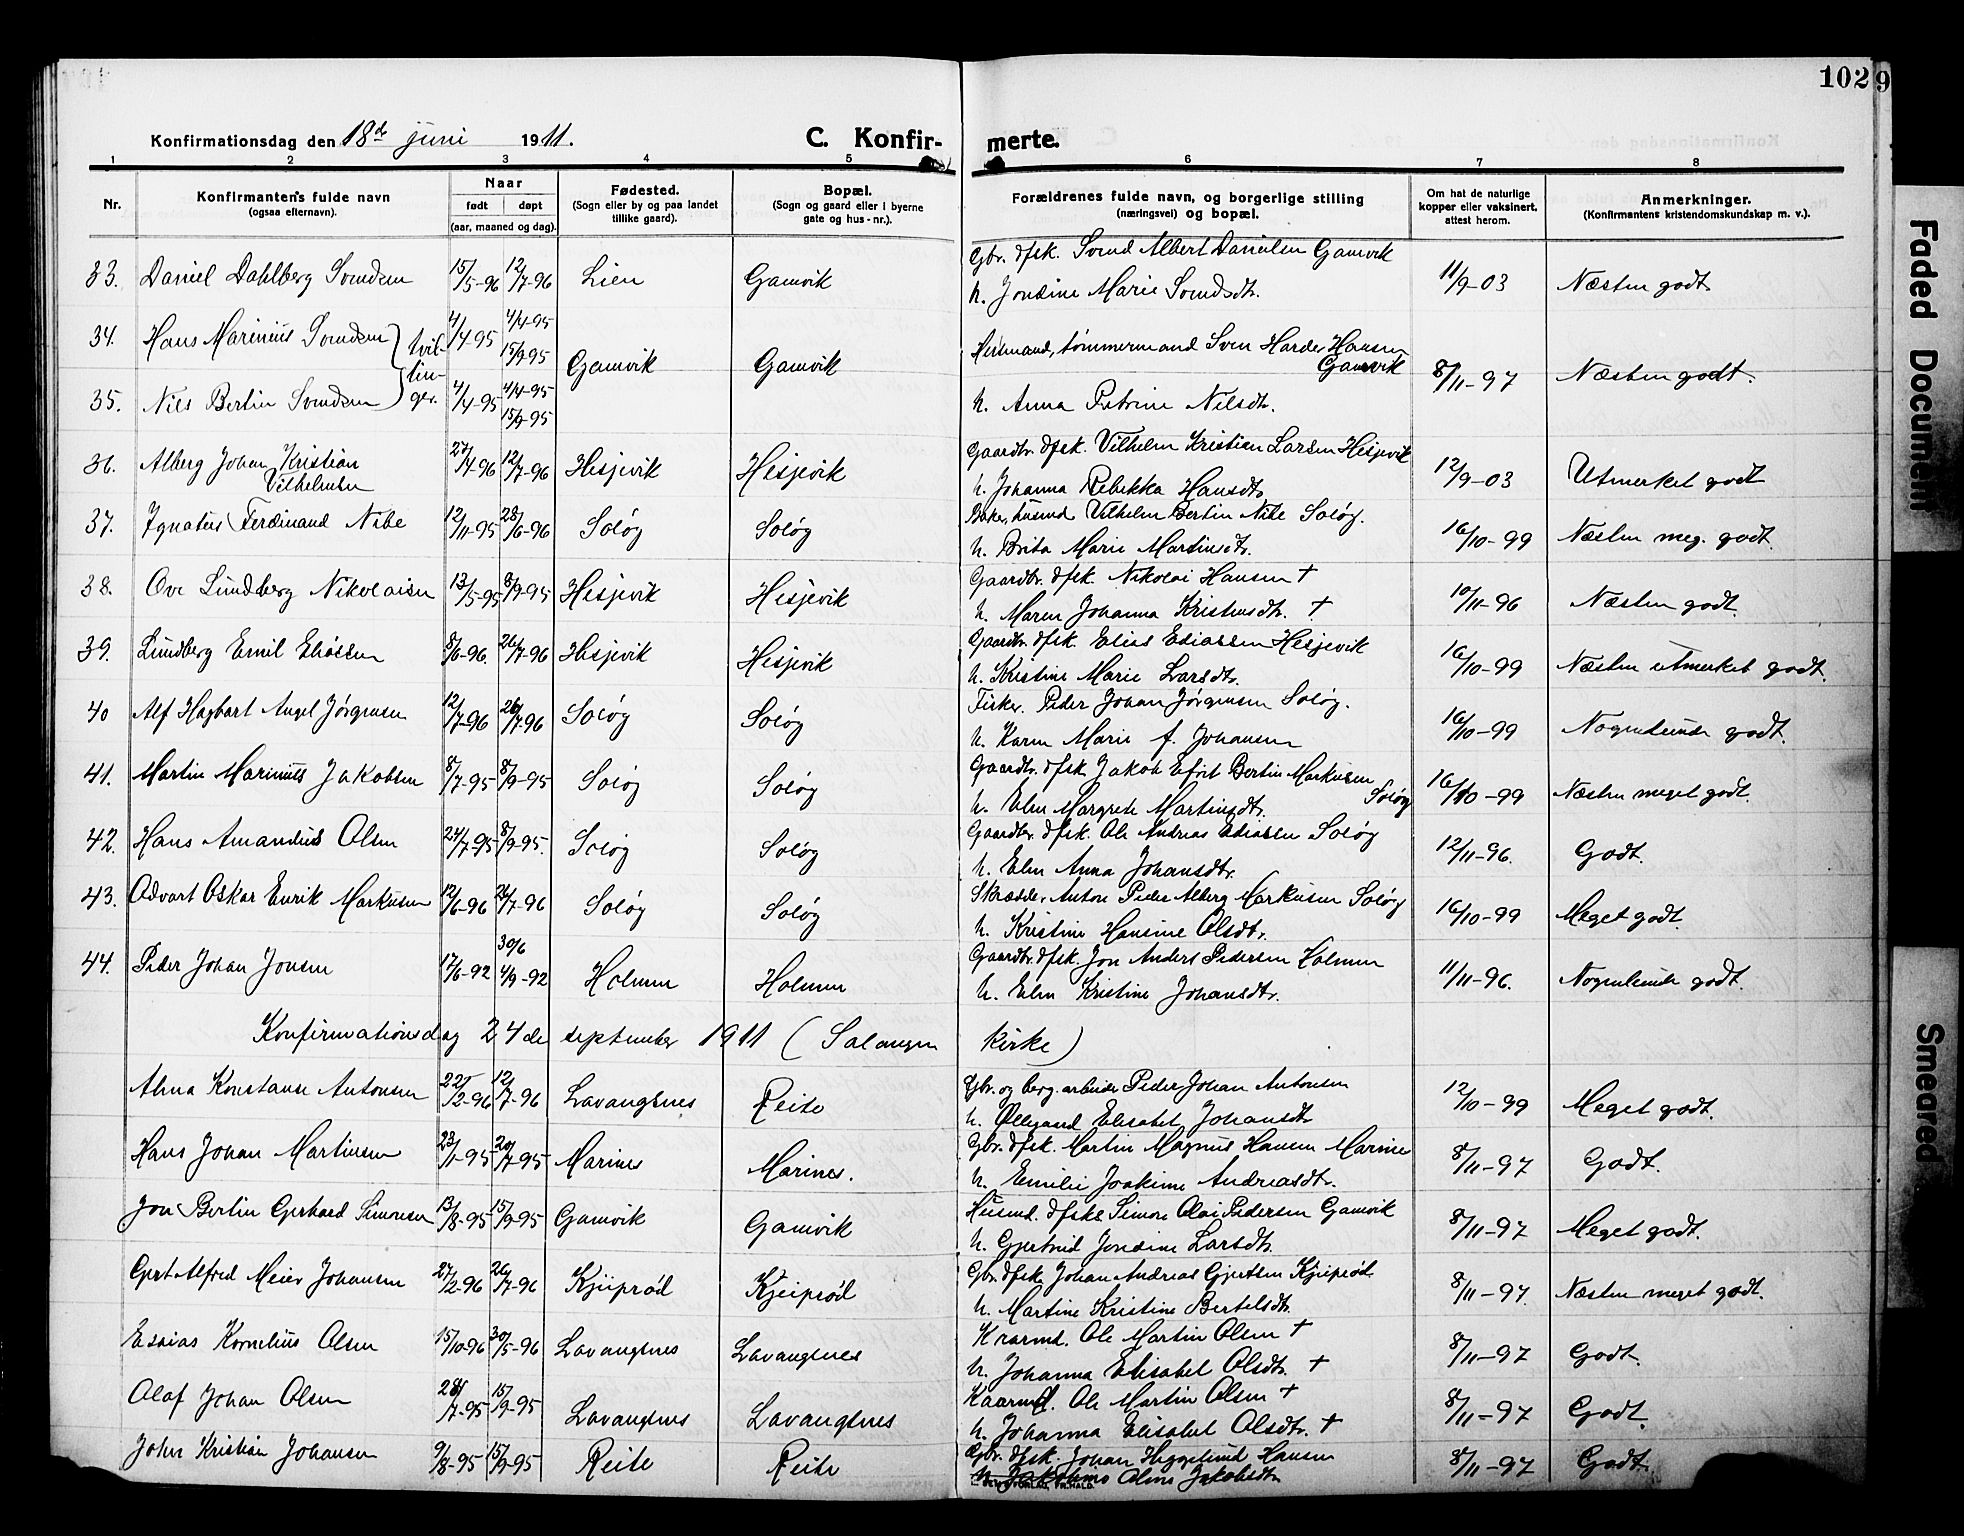 102 9
Konfirmationsdag den 18de juni 1911.
C. Konfirmerte.
1 2 3 4 5 6 7 8
Nr.
Konfirmanten's fulde navn
(ogsaa efternavn).
Naar
født døpt
(aar, maaned og dag).
Fødested.
(Sogn eller by og paa landet
tillike gaard).
Bopæl.
(Sogn og gaard eller i byerne
gate og hus-nr.).
Forældrenes fulde navn, og borgerlige stilling
(næringsvei) og bopæl.
Om hat de naturlige
kopper eller vaksinert,
attest herom.
Anmerkninger.
(Konfirmantens kristendomskundskap m. v.).
33. Daniel Dahlberg Svendsen 15/5-96 12/7-96 Lien Gamvik Gbr. dfsk. Svend Albert Danielsen Gamvik
h. Jondine Marie Svendsdtr. 11/9-03 Næsten godt
34. Hans Marinius Svendsen 4/4-95 4/4-95 15/9-95
tvillinger.
Gamvik Gamvik tømmermand Sven Harder Hansen
Gamvik
8/11-97 Næsten godt.
35. Nils Bertin Svendsen 4/4-95 4/4-95 15/9-95
h. Anna Petrine Nilsdtr.
36. Alberg Johan Kristian
Vilhelmsen 27/4-96 12/7-96 Hesjevik Hesjevik Gaardbr. dfsk. Vilhelm Kristian Larsen Hesjevik
h. Johanna Rebekka Hansdtr. 12/9-03 Utmerket godt
37. Ignatius Ferdinand Nibe 12/11-95 28/6-96 Soløy Soløy Baker, husmd Vilhelm Bertin Nibe Soløy.
h. Brita Marie Martinsdtr. 16/10-99 Næsten meg. godt.
38. Ove Lundberg Nikolaisen 13/5-95 8/9-95 Hesjevik Hesjevik Gaardbr. dfsk. Nikolai Hansen †
h. Maren Johanna Kristensdtr. † 10/11-96 Næsten godt.
39. Lundberg Emil Eliassen 8/6-96. 26/7-96 Hesjevik Hesjevik Gaardbr. dfsk. Elias Ediassen Hesjevik
h. Kristine Marie Larsdtr. 16/10-99 Næsten utmerket godt.
40 Alf Hagbart Angel Jørgensen 12/7-96 26/7-96 Soløy Soløy Fisker. Peder Johan Jørgensen Soløy.
h. Karen Marie f. Johansen 16/10-99 Nogenlunde godt.
41. Martin Marinius Jakobsen 8/7-95 8/9-95 Soløy Soløy Gaardbr. dfsk. Jakob Efvit Bertin Markusen
Soløy
h. Elen Margrete Martinsdtr. 16/10-99 Næsten meget godt.
42. Hans Amandus Olsen 24/7-95 8/9-95. Soløy Soløy Gaardbr. dfsk. Ole Andreas Ediassen Soløy
h. Elen Anna Johansdtr. 12/11-96. Godt.
43. Edvart Oskar Enrik Markusen 12/6-96 26/7-96 Soløy Soløy Skrædder Anton Peder Alberg Markusen Soløy
h. Kristine Hansine Olsdtr. 16/10-99 Meget godt.
44. Peder Johan Jonsen 17/6-92 30/6 4/9-92 Holmen Holmen Gaardbr. dfsk. Jon Anders Pedersen Holmen
h. Elen Kristine Johansdtr. 11/11-96. Nogenlunde godt.
Konfirmationsdag 24de september 1911 (Salangen kirke)
Alma Konstanse Antonsen 22/2-96 12/7-96 Lavangsnes Reite Gbr. og berg. arbeide Peder Johan Antonsen
h. Øllegaard Elisabet Johansdtr. 12/10-99 Meget godt.
Hans Johan Martinsen 23/11-95 20/7-95 Marines Marines. Gbr. dfsk. Martin Magnus Hansen Marines
h. Emilie Joakime Andreasdtr. 8/11-97 Godt.
Jon Bertin Gerhard Simonsen 13/8-95 15/9-95 Gamvik Gamvik Husmd. dfsk. Simon Olai Pedersen Gamvik
h. Gjertrud Jondine Larsdtr. 8/11-97 Meget godt.
Gert Alfred Meier Johansen 27/2-96 26/7-96 Kjeiprød Kjeiprød Gbr. dfsk. Johan Andreas Gjertsen Kjeiprød
h. Martine Kristine Bertelsdtr. 8/11-97. Næsten meget godt.
Esaias Kornelius Olsen 15/10-96 30/5-96 Lavangsnes Lavangsnes Kaarmd. Ole Martin Olsen †
h. Johanna Elisabet Olsdtr. † 8/11-97 Godt.
Olaf Johan Olsen 28/7-95 15/9-95 Lavangsnes Lavangsnes Kaarmd. Ole Martin Olsen †
h. Johanna Elisabet Olsdtr. † 8/11-97 Godt.
John Kristian Johansen 9/8-95 15/9-95 Reite Reite Gbr. dfsk. Johan Heggelund Hansen
h. Jakobine Oline Jakobsdtr. 8/11-97 Godt.
Faded Document
Smeared